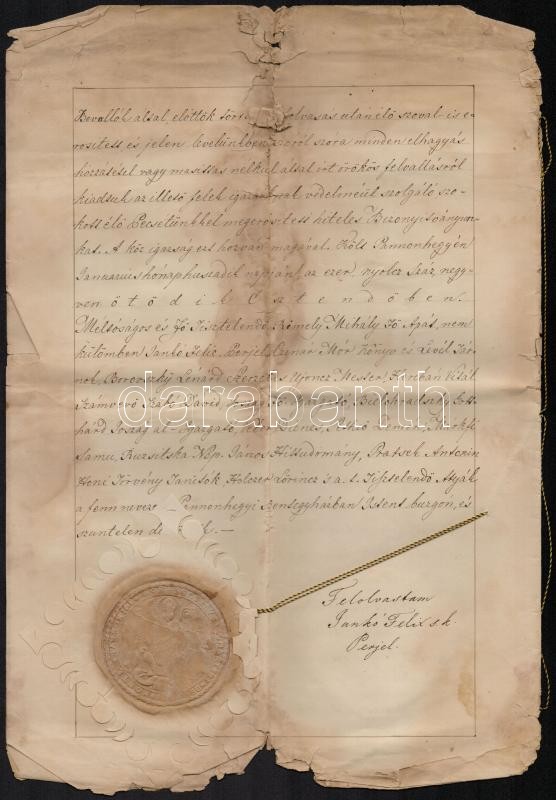 Bevallók által előttök törté olvasás után élő szoval is e-
rősitett és jelen levelünkben szoról szora minden elhagyás
hozzátétel vagy masittas nélkül által irt örökös felvallásról
kiadtuk az illető felek igazainak védelméül szolgáló szo-
kott élő Pecsetünkkel megerősitett hiteles Bizonyitványun-
kat. A köz igazság ezt hozván magával. Költ Pannonhegyén
Januarius hónap huszadik napján, az ezer, nyolcz Száz negy-
ven ötödik Esztendőben.
Méltóságos és Fő Tisztelendő Rimely Mihály Fő Apát, nem
külömben Jankó Felic. Perjel, Czinár Mór Könyv és Levél Tár-
nok, Ujoncz Mester,
Számvevő Dávid,
hárd Jószág
Samu, Ruzsitska Ker. János Hittudomány, Pratsek Antonin
Honi Törvény Tanitók Holczer Lőrincz 's a. t. Tisztelendő Atyák
a fenn neveze Pannonhegyi Szentegyházban Istent buzgón, és
szüntelen di k.—
Felolvastam
Jankó Felix sk.
Perjel.
darabanth